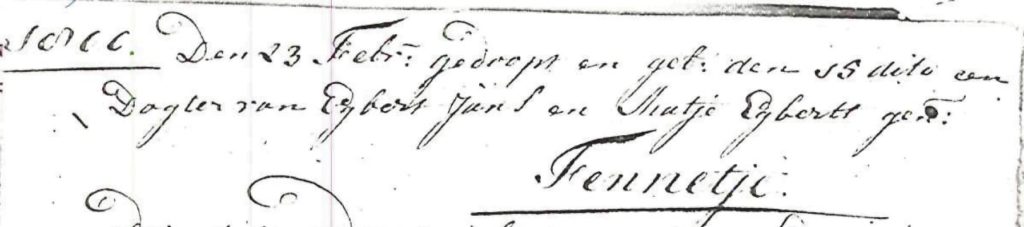 1806. Den 23 Febr: gedoopt en geb: den 15 dito een
Dogter van Egbert Jans en Egberts gen:
Fennetje.